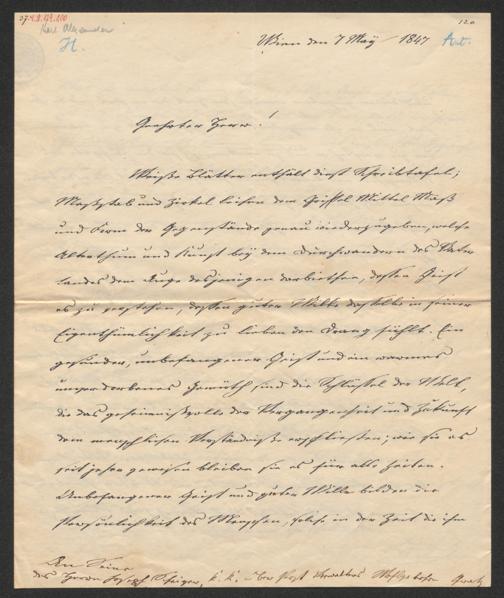 Karl Alexander
H.
120
Wien den 7 Maÿ 1847
Art.
Geehrter Herr!
Weiße Blätter enthält diese Schreibtafel;
Maßstab und Zirkel leihen dem Griffel Mittel Maß
und Form der Gegenstände genau wiederzugeben, welche
Alterthum und Kunst beÿ dem Durchwandern des Vater
landes dem Auge desjenigen darbiethen, dessen Geist
es zu verstehen, dessen guter Wille dasselbe in seiner
Eigenthümlichkeit zu lieben den Drang fühlt. Ein
gesunder, unbefangener Geist und ein warmes
unverdorbenes Gemüth sind die Schlüssel der Welt,
die das geheimnißvolle der Vergangenheit und Zukunft
dem menschlichen Verständniße erschliessen; wie sie es
seit jeher gewesen bleiben sie es für alle Zeiten.
Unbefangener Geist und guter Wille bilden die
Persönlichkeit des Menschen, welche in der Zeit die ihm
An Seine
des Herrn Joseph Scheiger, k. k. Verwalters